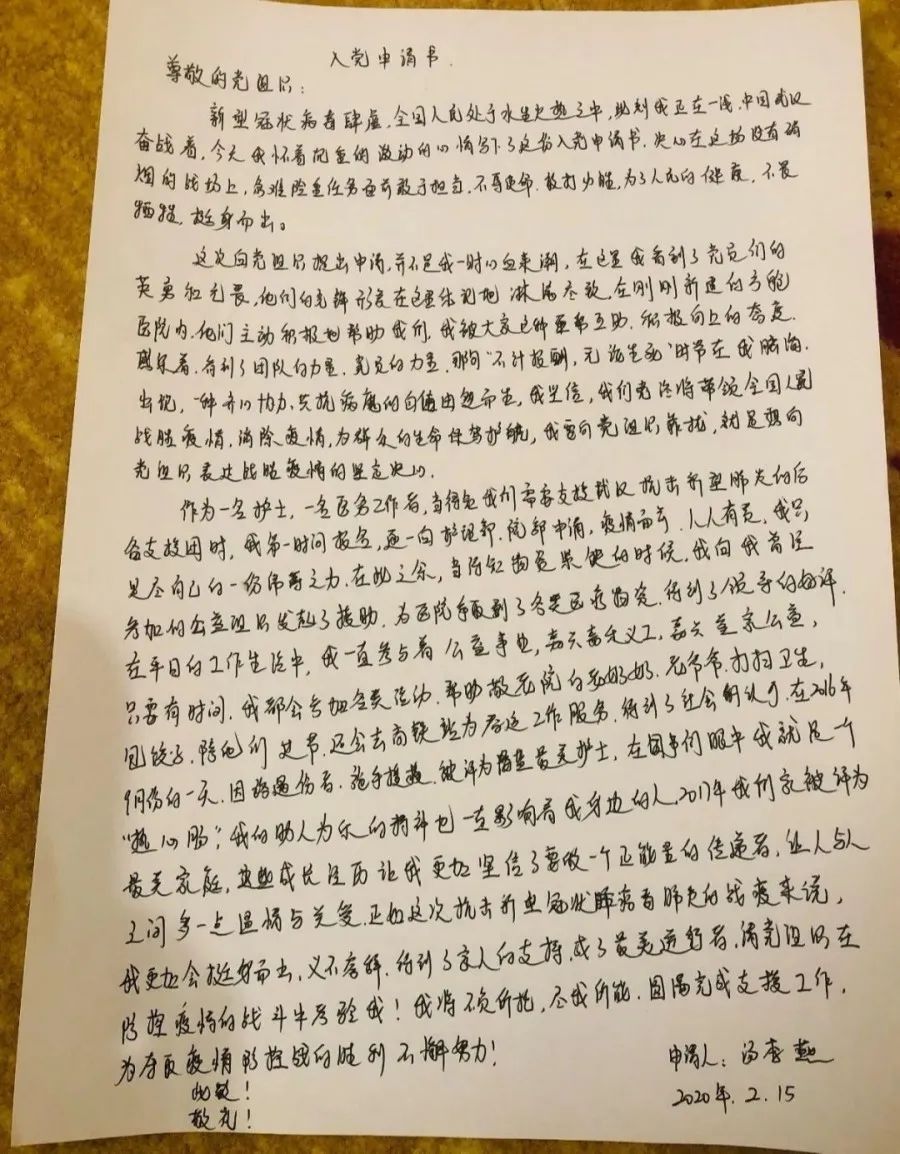 入党申请书.
尊敬的党组织:
新型冠状病毒肆虐,全国人民处于水生火热之中,此刻我正在一线.中国武汉
奋战着,今天我怀着沉重的激动的心情写下了这份入党申请书.决心在这场没有硝
烟的战场上,急难险重任务面前敢于担当,不辱使命.敢打必胜,为了人民的健康,不畏
牺牲,挺身而出。
这次向党组织提出申请,并不是我一时心血来潮,在这里我看到了党员们的
英勇和无畏,他们的先锋形象在这里体现地淋漓尽致,在刚刚新建的方舱
医院内.他们主动积极地帮助我们,我被大家这种互帮互助.积极向上的态度.
感染着.看到了团队的力量.党员的力量,那句“不计报酬,无论生死”时常在我脑海.
出现,一种齐心协力.共抗病魔的自信由然而生,我坚信,我们党终将带领全国人民
战胜疫情,消除疫情,为群众的生命保驾护航,我要向党组织靠拢,就是想向
党组织表达战胜疫情的坚定决心.
作为一名护士,一名医务工作者,当得知我们需要支援武汉抗击新型肺炎的后
备支援团时,我第一时间报名,逐一向护理部.院部申请,疫情面前.人人有责,我只
是尽自己的一份绵薄之力.在此之余,当得知物资紧缺的时候,我向我曾经
参加的公益组织发起了援助.为医院争取到了各类医疗物资.得到了领导的好评.
在平日的工作生活中,我一直参与着公益事业,嘉兴义工,嘉兴公益,
只要有时间.我都会参加各类活动.帮助敬老院的老奶奶.老爷爷.打扫卫生,
包饺子.陪他们过节.还会去高铁站为春运工作服务.得到了社会的认可.在2016年
9月份的一天.因路遇伤者.施手援救.被评为最美护士,在同事们眼中我就是一个
“热心肠”,我的助人为乐的精神也一直影响着我身边的人.2017年我们家被评为
最美家庭,这些成长经历让我更加坚信了要做一个正能量的传递者,让人与人
之间多一点温情与关爱.正如这次抗击新型冠状病毒肺炎的战疫来说,
我更加会挺身而出,义不容辞.得到了家人的支持,成了最美逆行者,请党组织在
防控疫情的战斗中考验我!我将不负所托,尽我所能.圆满完成支援工作,
为夺取疫情防控战的胜利不懈努力!
此致!
敬礼!
申请人:
2020年.2.15